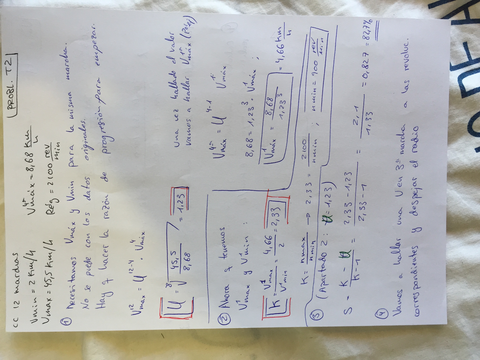 PROBL. T2
CC 12 marchas
Vmin = 2 Km/h
Vmax = 45,5 Km/h
V⁴máx = 8,68 Km/h
Rég = 2100 rev/min
① Necesitamos Vmáx y Vmin para la misma marcha.
No se puede con los datos originales.
Hay q hacer la razón de progresión para empezar.
V¹²máx = U¹²⁻⁴ · V⁴máx
U = ⁸√45,5/8,68 = 1,23
Una vez hallado el valor
vamos a hallar V¹máx
V⁴máx = U⁴⁻¹ V¹máx
8,68 = 1,23³ · V¹máx ;
V¹máx = 8,68/1,23³ = 4,66 Km/h
② Ahora q tenemos
V¹máx y V¹min
K = V¹máx/V¹min = 4,66/2 = 2,33
K = nmax/nmin → 2,33 = 2100/nmin ; nmin = 900 rev/min
③ (Apartado 2: U = 1,23)
S = K - U/K - 1 = 2,33 - 1,23/2,33 - 1 = 1,1/1,33 = 0,827 = 82,7%
④ Vamos a hallar una V en 3ª marcha a las revoluc.
correspondientes y despejar el radio